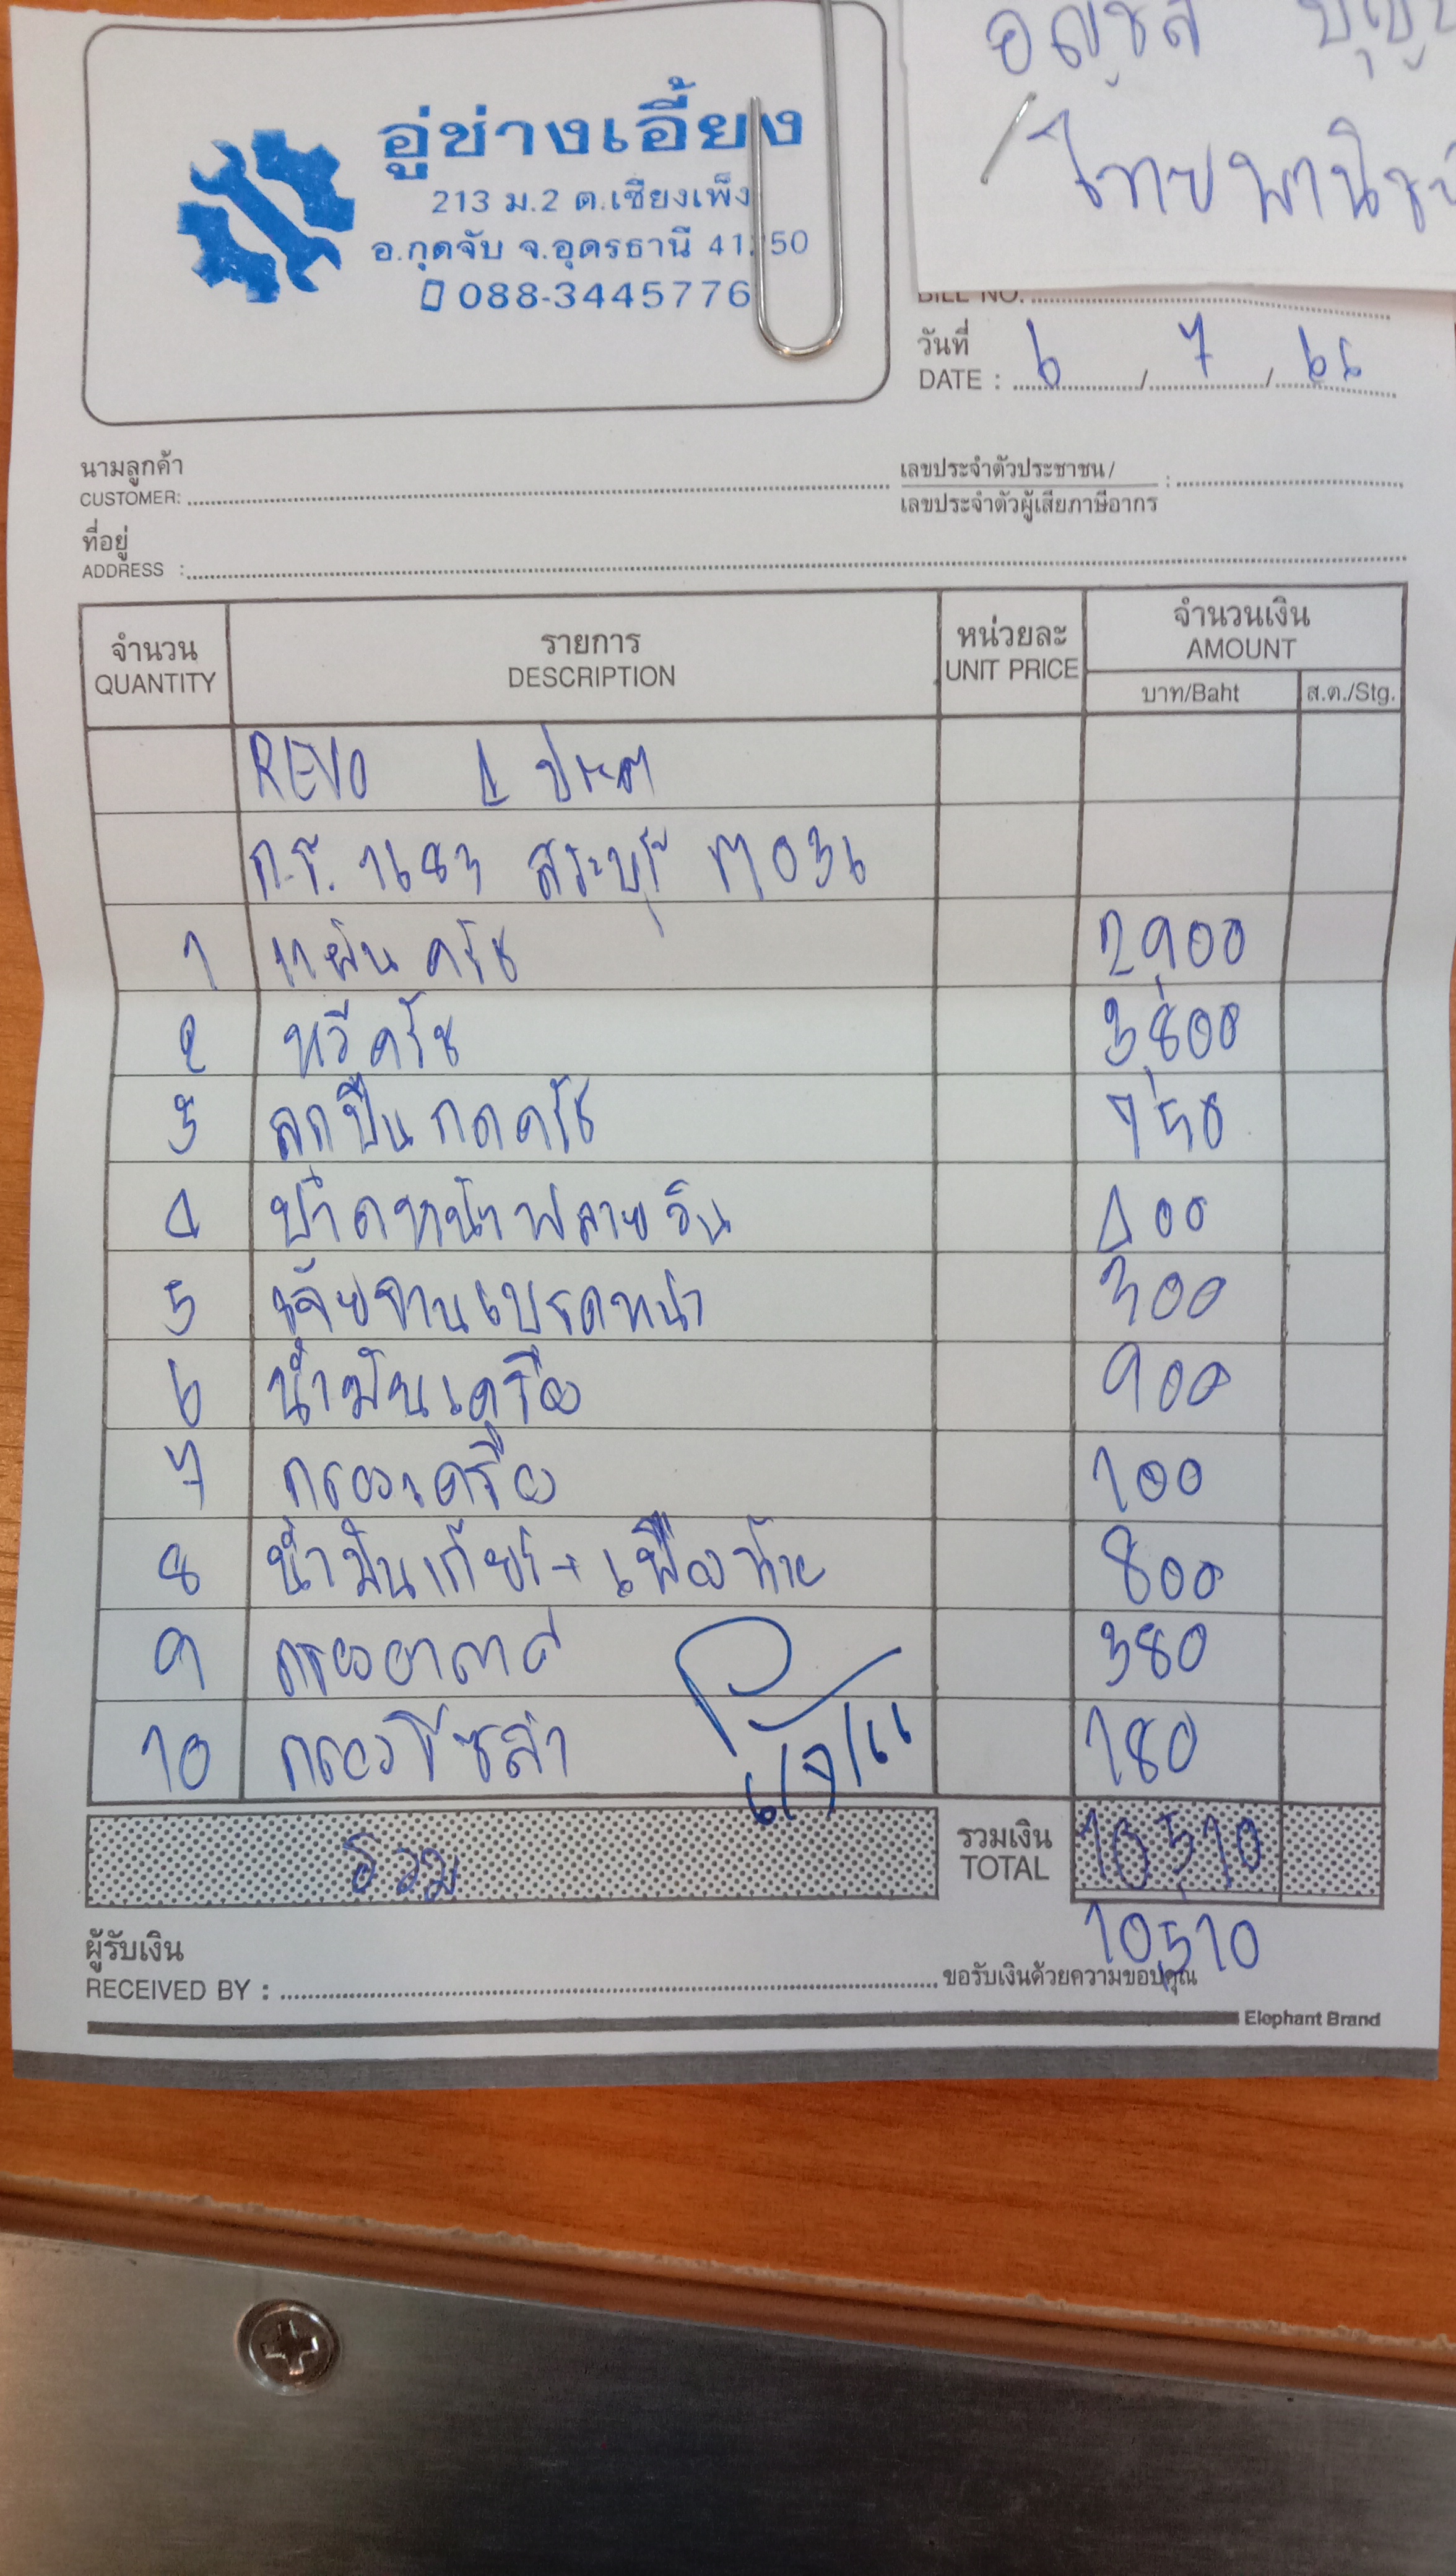 อัญชลี
/ ไทยพานิช
อู่ช่างเอี้ยง
213 ม.2 ต.เชียงเพ็ง
อ.กุดจับ จ.อุดรธานี 41250
088-3445776
BILL NO.
วันที่
DATE : 6 / 7 / 66
นามลูกค้า
CUSTOMER:
เลขประจำตัวประชาชน /
เลขประจำตัวผู้เสียภาษีอากร :
ที่อยู่
ADDRESS :
จำนวน QUANTITY รายการ DESCRIPTION หน่วยละ UNIT PRICE จำนวนเงิน AMOUNT
บาท/Baht ส.ต./Stg.
REVO 4 ประตู
สระบุรี M036
1 แผ่นครัช 2,900
2 หวีครัช 3,800
3 ลูกปืนกดครัช 750
4 ปาดหน้าฟลายวิน 400
5 เจียจานเบรคหน้า 300
6 น้ำมันเครื่อง 900
7 กรองเครื่อง 100
8 น้ำมันเกียร์ + เฟืองท้าย 800
9 กรองอากาศ 380
10 กรองโซล่า 180
รวม รวมเงิน TOTAL 10,510
10,510
ผู้รับเงิน
RECEIVED BY : ขอรับเงินด้วยความขอบคุณ
Elephant Brand